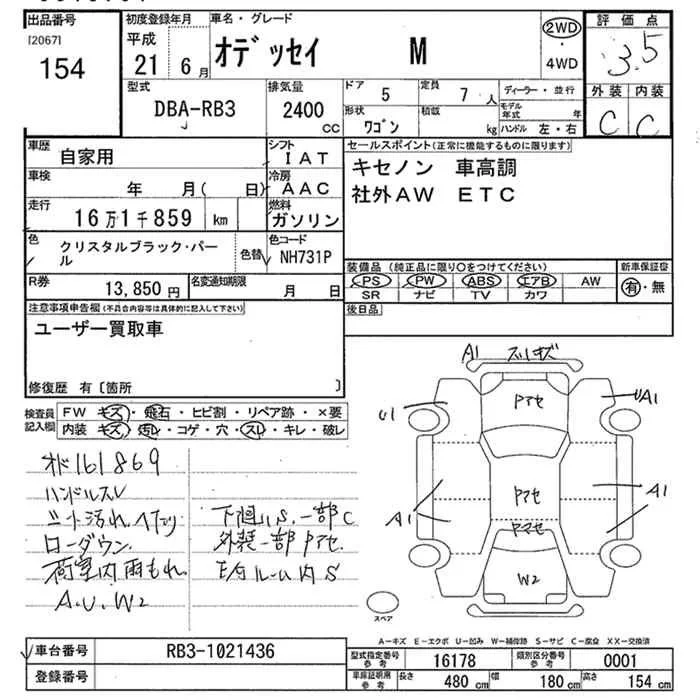 出品番号
[2067]
154
初度登録年月
平成
21 6月
車名・グレード
オデッセイ M
2WD
・
4WD
評価点
3.5
外装 内装
C C
型式
DBA-RB3
排気量
2400
CC
ドア 5
定員 7人
形状 ワゴン
積載 kg
ディーラー・並行
モデル年式 年
ハンドル 左・右
車歴 自家用
シフト IAT
車検 年 月( 日)
冷房 AAC
走行 16万1千859 km
燃料 ガソリン
色 クリスタルブラック・パール
色替
色コード NH731P
R券 13,850円
名変通知期限 月 日
セールスポイント(正常に機能する物に限ります)
キセノン 車高調
社外AW ETC
装備品 (純正品に限り○をつけてください)
PS PW ABS エアB AW
SR ナビ TV カワ
新車保証書
有・無
後日品
注意事項申告欄(不具合内容等は具体的に記入して下さい)
ユーザー買取車
修復歴 有〔箇所 〕
検査員記入欄
FW キズ・飛石・ヒビ割・リペア跡・×要
内装 キズ・汚レ・コゲ・穴・スレ・キレ・破レ
161869
ハンドルスレ
シート汚れ ヘタリ
ローダウン
荷室内雨もれ
A.U.W2
下廻りS.一部C
外装一部Pアセ
ルーム内S
A1 スリキズ
Pアセ
U1
UA1
A1
Pアセ
A1
Pマセ
W2
スペア
A―キズ E―エクボ U―凹み W―補修跡 S―サビ C―腐食 XX―交換済
車台番号 RB3-1021436
登録番号
型式指定番号 参考 16178
類別区分番号 参考 0001
車庫証明用 参考 長さ 480 cm 幅 180 cm 高さ 154 cm